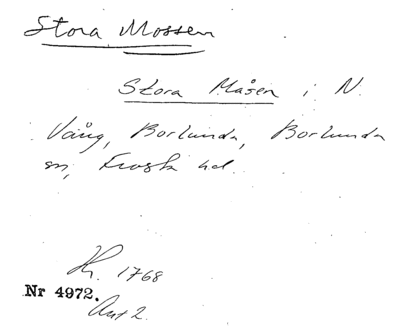 Stora Mossen
Stora Måsen i N.
Vång, Borlunda, Borlunda
sn, Frosta hd.
Hr. 1768
Nr 4972.
Akt 2.